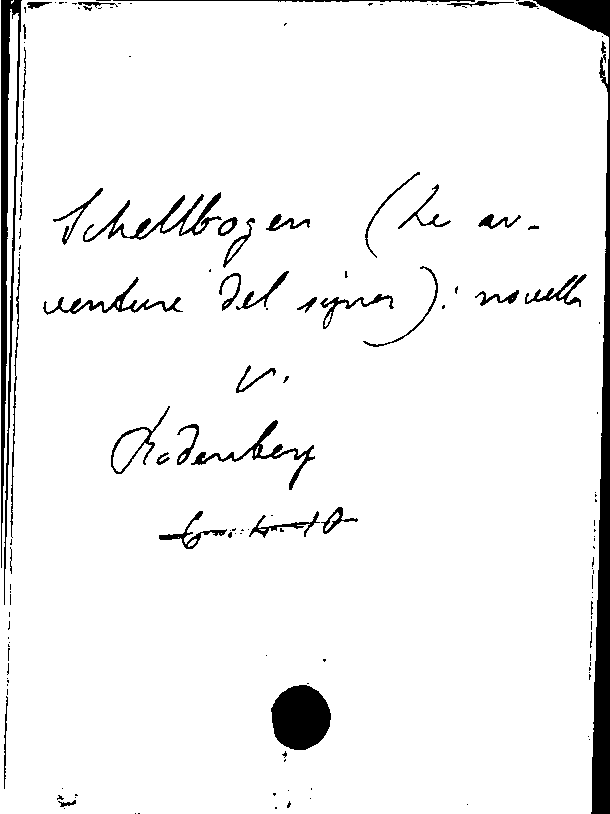 Schellbogen (Le av-
venture del signor): novella
v.
Rodenberg
6. 4. 10